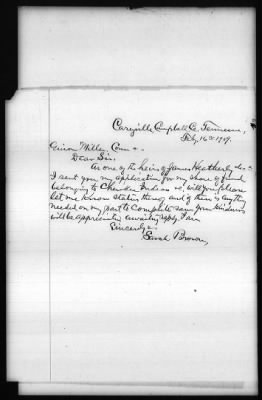 Caryville Campbell Co, Tennessee,
Feb, 16th 1909.
Guion Miller Com
Dear Sir.
As one of the heirs of James Heatherly dec
I sent you my application for my share of fund
belonging to Cherokee Indians will you please
let me know status thereof and if there is anything
needed on my part to complete same your kindness
will be appreciated awaiting reply I am
Sincerely
Sarah Brown,